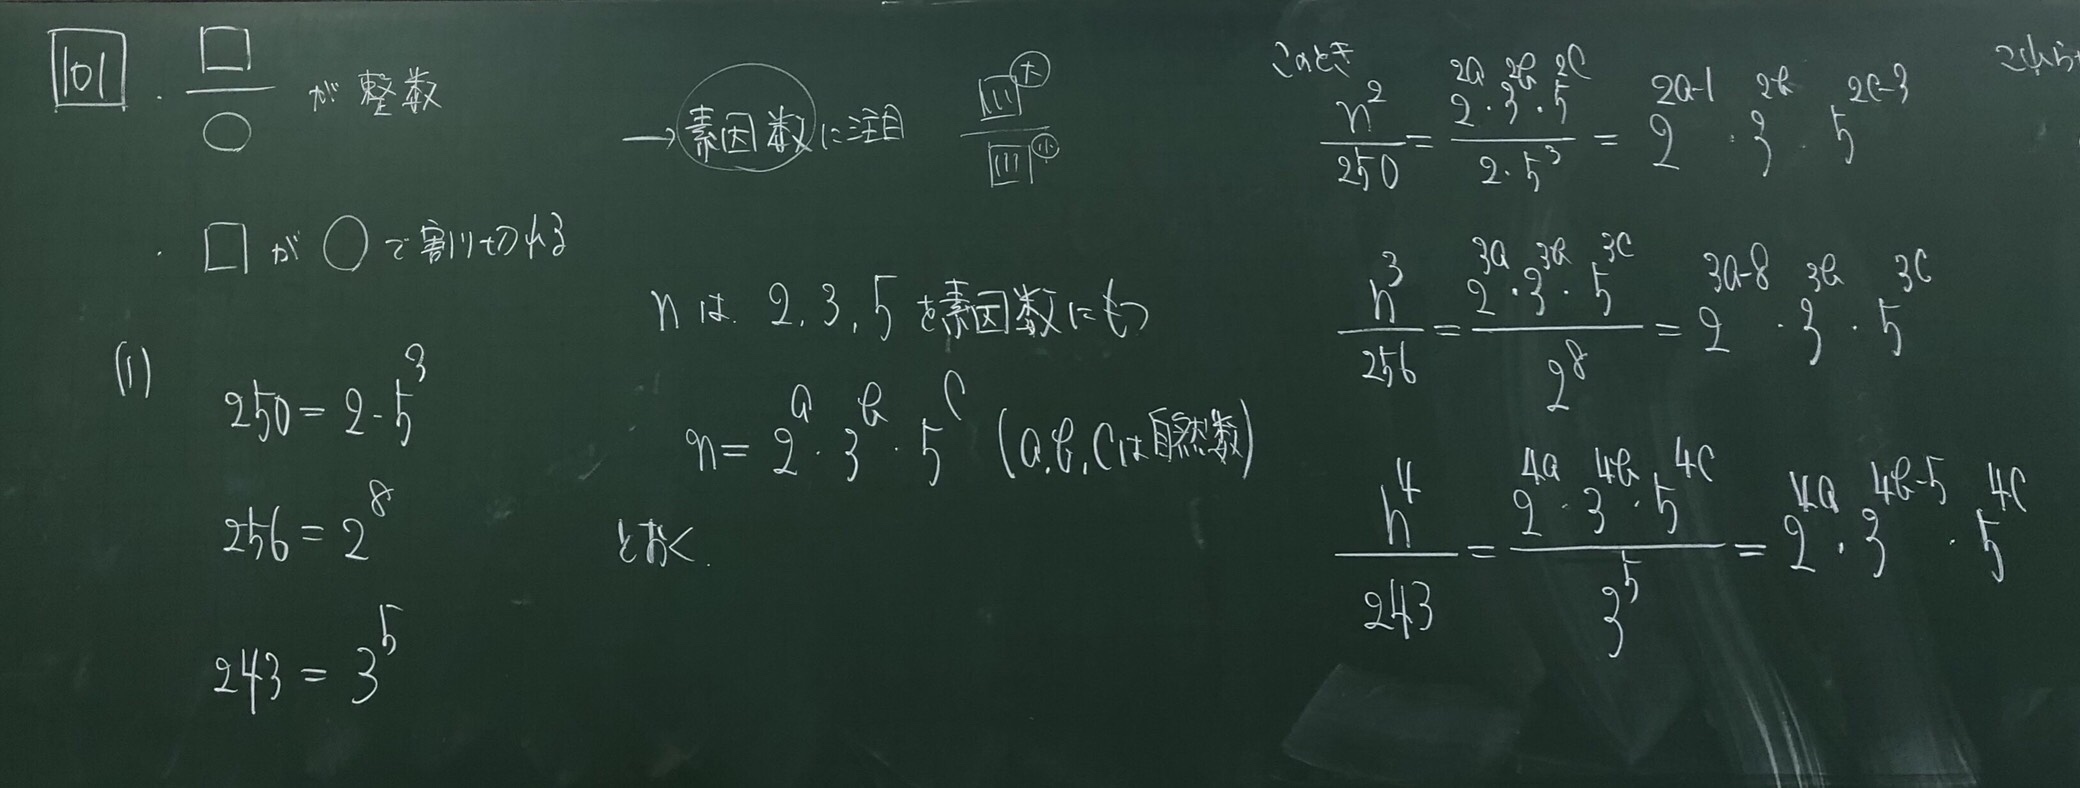 101
・ □/○ が 整数
・ □ が ○ で割り切れる
→ 素因数に注目 大 小
(1)
250 = 2・5³
256 = 2⁸
243 = 3⁵
n は 2, 3, 5 を素因数にもつ
n = 2ᵃ・3ᵇ・5ᶜ (a, b, c は自然数)
とおく.
このとき
n²/250 = 2²ᵃ・3²ᵇ・5²ᶜ / 2・5³ = 2²ᵃ⁻¹・3²ᵇ・5²ᶜ⁻³
n³/256 = 2³ᵃ・3³ᵇ・5³ᶜ / 2⁸ = 2³ᵃ⁻⁸・3³ᵇ・5³ᶜ
n⁴/243 = 2⁴ᵃ・3⁴ᵇ・5⁴ᶜ / 3⁵ = 2⁴ᵃ・3⁴ᵇ⁻⁵・5⁴ᶜ